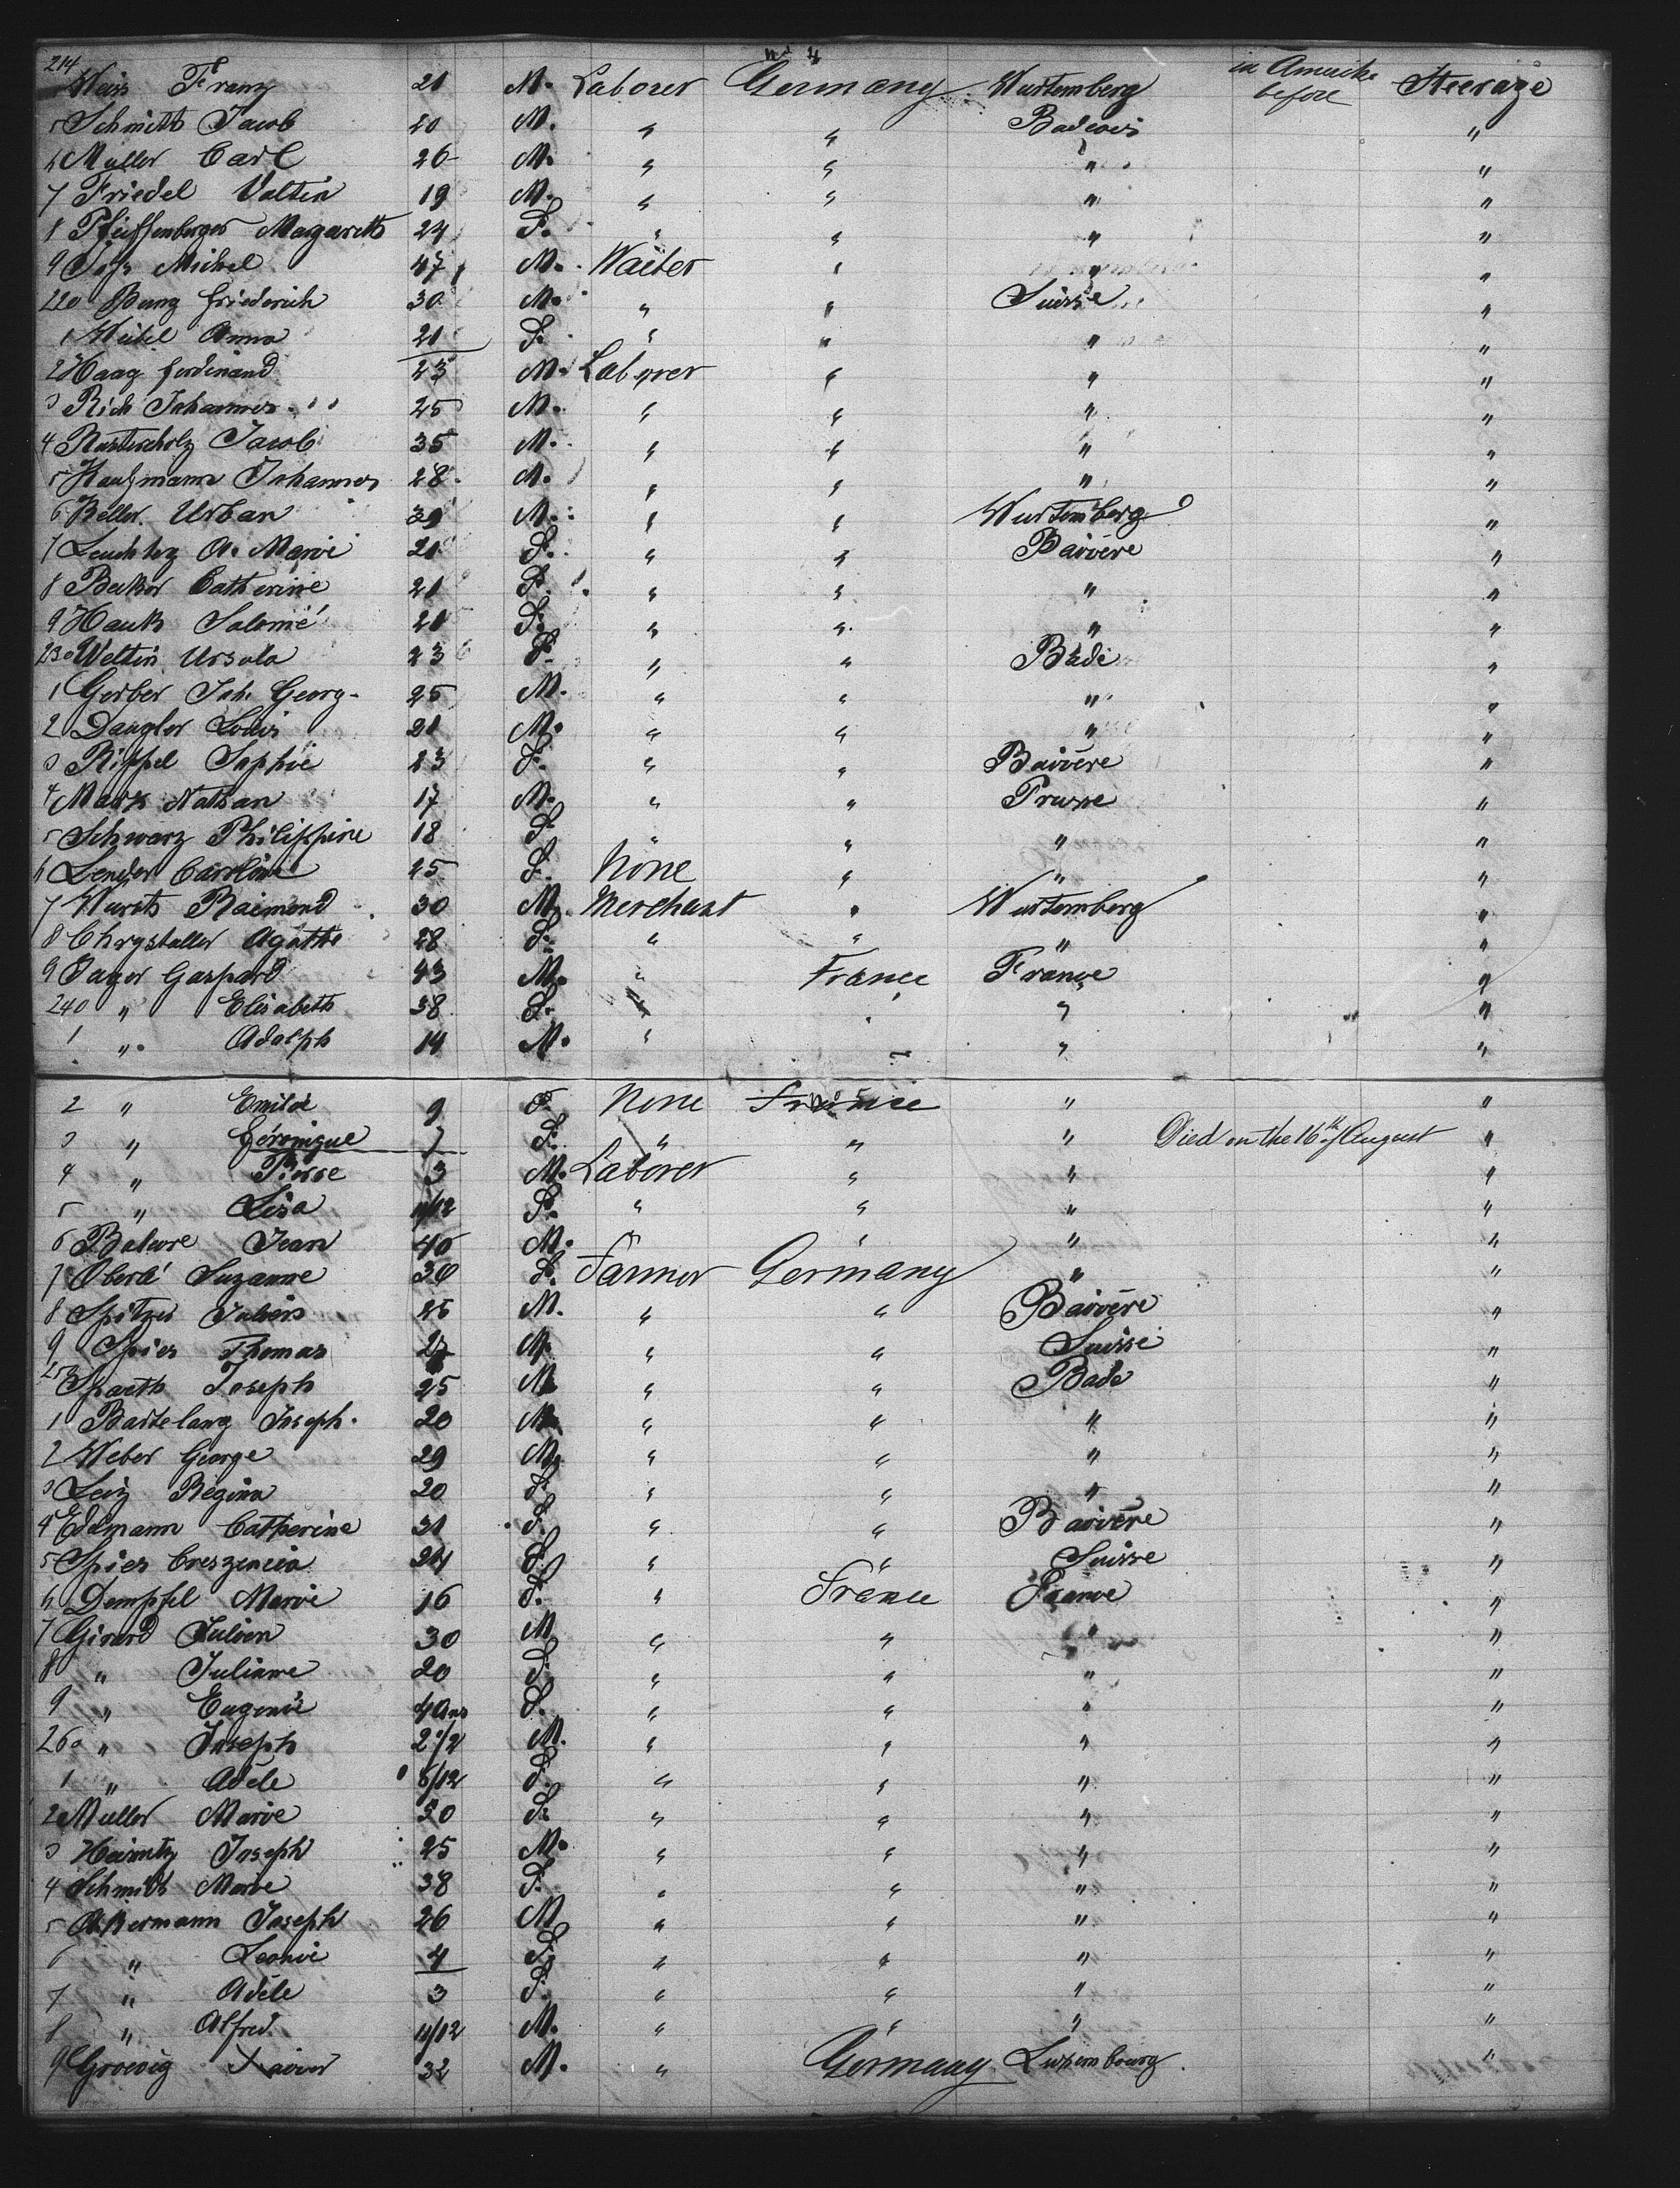 No 4
214 Weiss Franz 21 M. Laborer Germany Wurtemberg in Amerika before Steerage
5 Schmitt Jacob 20 M. " " Badeois "
6 Muller Carl 26 M. " " " "
7 Friedel Valtin 19 M. " " " "
8 Pfeiffenberger Margareth 24 F. " " " "
9 Michel 47 M. Waiter " " "
220 Friederich 30 M. " " Suisse "
1 Weibel Anna 21 F. " " " "
2 Haag Ferdinand 23 M. Laborer " " "
3 Rich Johannes 25 M. " " " "
4 Jacob 35 M. " " " "
5 Kaufmann Johannes 28 M. " " " "
6 Keller Urban 39 M. " " Wurtemberg "
7 A. Marie 21 F. " " Bavière "
8 Becker Catherine 21 F. " " " "
9 Hauk Salomé 21 F. " " " "
230 Weltin Ursula 23 F. " " Bade "
1 Gerber Joh. Georg 25 M. " " " "
2 Dangler Louis 21 M. " " " "
3 Rippel Sophie 23 F. " " Bavière "
4 Marx Nathan 17 M. " " Prusse "
5 Schwarz Philippine 18 F. " " " "
6 Lender Caroline 25 F. None " " "
7 Wursts Raimond 30 M. Merchant " Wurtemberg "
8 Chrystaller Agathe 28 F. " " " "
9 Jager Gaspard 43 M. " France France "
240 " Elisabeth 38 F. " " " "
1 " Adolph 14 M. " " "
2 " Emilie 9 F. None France " "
3 " Féronique 7 F. " " " Died on the 16th of August "
4 " Pierre 3 M. Laborer " " "
5 " Lisa 11/12 F. " " " "
6 Jean 40 M. " " " "
7 Oberlé Suzanne 30 F. Farmer Germany " "
8 Spitzer Julius 25 M. " " Bavière "
9 Spies Thomas M. " " Suisse "
250 Spaeth Joseph 25 M " " Bade "
1 Bartelang Joseph. 20 M. " " " "
2 Weber George 29 M. " " " "
3 Leiz Regina 20 F. " " " "
4 Edmann Catherine 31 F. " " Bavière "
5 Spies Creszencia 24 F. " " Suisse "
6 Dempfel Marie 16 F. " France France "
7 Girard Julien 30 M " " " "
8 " Julianne 20 F. " " " "
9 " Eugenie 4 Ans F. " " " "
260 " Joseph 2 1/2 M. " " " "
1 " Adèle 6/12 F. " " " "
2 Muller Marie 30 F. " " " "
3 Joseph 25 M. " " " "
4 Schmidt Marie 38 F. " " " "
5 Akermann Joseph 26 M " " " "
6 " Leonie 4 F. " " " "
7 " Adèle 3 F. " " " "
8 " Alfred. 11/12 M. " " " "
9 Xavier 32 M. " Germany Luxembourg. "